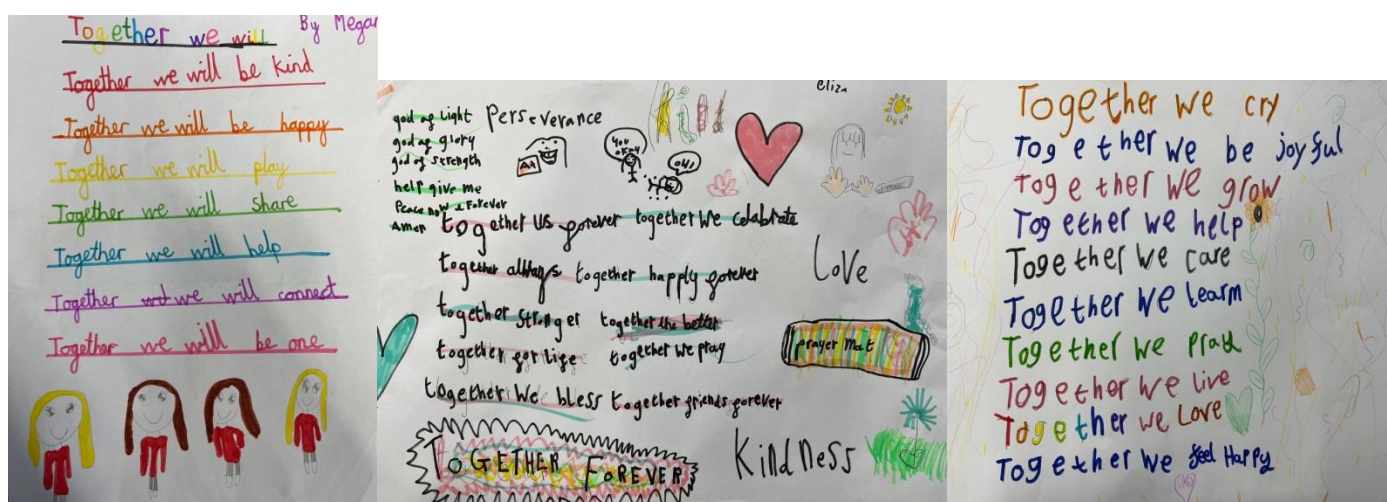 Together we will
By Megan
Together we will be kind
Together we will be happy
Together we will play
Together we will share
Together we will help
Together we will connect
Together we will be one
eliza
god of light
god of glory
god of strength
help give me
Peace now & Forever
Amen
Perseverance
you okay
together us forever together we colabrate
together always together happy forever
Love
together stronger together the better
together for life together we pray
prayer mat
together we bless together friends forever
TOGETHER FOREVER
Kindness
Together we cry
Together we be joyful
Together we grow
Together we help
Together we care
Together we learm
Together we pray
Together we live
Together we Love
Together we feel Happy